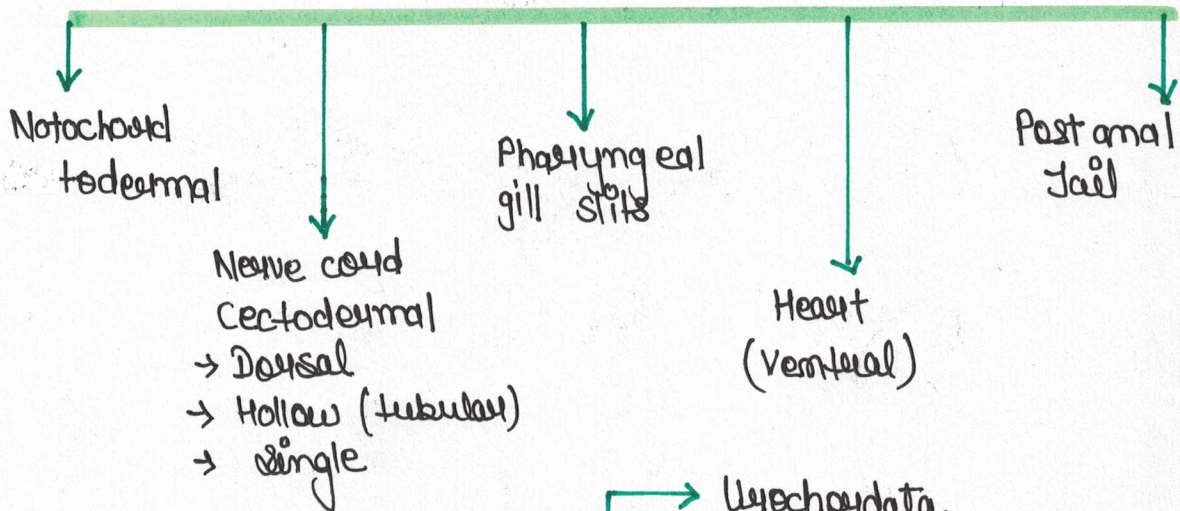 Notochord
todermal
Nerve cord
Cectodermal
→ Dorsal
→ Hollow (tubular)
→ Single
Pharyngeal
gill slits
Heart
(Ventral)
Post anal
Tail
→ Urochordata